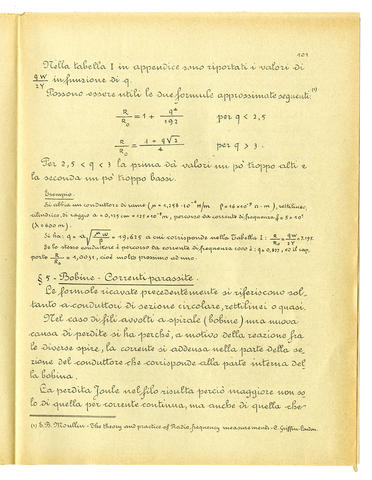 101
Nella tabella I in appendice sono riportati i valori di
qW/2Y in funzione di q.
Possono essere utili le due formule approssimate seguenti: (1)
R/R₀ = 1 + q⁴/192 per q < 2,5
R/R₀ = (1 + q√2)/4 per q > 3.
Per 2,5 < q < 3 la prima dà valori un po' troppo alti e
la seconda un po' troppo bassi.
Esempio.
Si abbia un conduttore di rame (μ = 1,256·10⁻⁶ H/m ρ = 16×10⁻⁹ Ω·m), rettilineo,
cilindrico, di raggio a = 0,125 cm = 125×10⁻⁵ m, percorso da corrente di frequenza f = 5×10⁵
(λ = 600 m).
Si ha: q = a √(μω/ρ) = 19,625 a cui corrisponde nella Tabella I: R/R₀ = qW/2Y = 7,195.
Se lo stesso conduttore è percorso da corrente di frequenza è: q = 0,877, ed il rap,
porto R/R₀ = 1,0031, cioè molto prossimo ad uno.
§ 5 - Bobine - Correnti parassite.
Le formole ricavate precedentemente si riferiscono sol,
tanto a conduttori di sezione circolare, rettilinei o quasi.
Nel caso di fili avvolti a spirale (bobine) una nuova
causa di perdite si ha perchè, a motivo della reazione fra
le diverse spire, la corrente si addensa nella parte della se,
zione del conduttore che corrisponde alla parte interna del
la bobina.
La perdita Joule nel filo risulta perciò maggiore non so
lo di quella per corrente continua, ma anche di quella che
(1) E.B. Moullin - The theory and practice of Radio, frequency measurements - C. Griffin London.